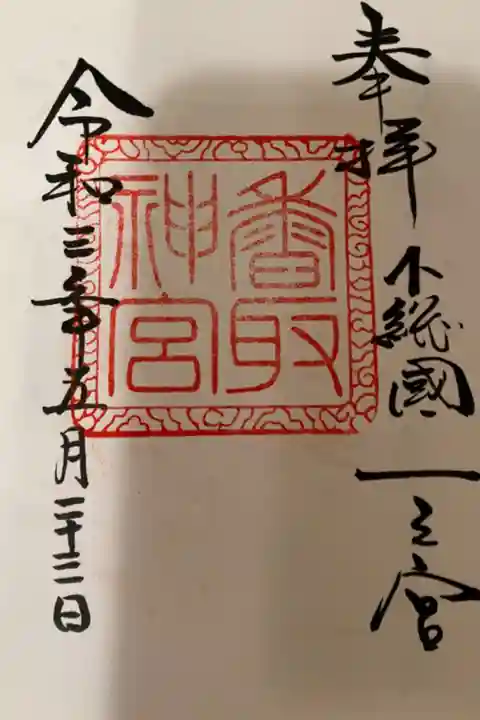 奉拝
下総國一之宮
香取
神宮
令和三年五月二十三日